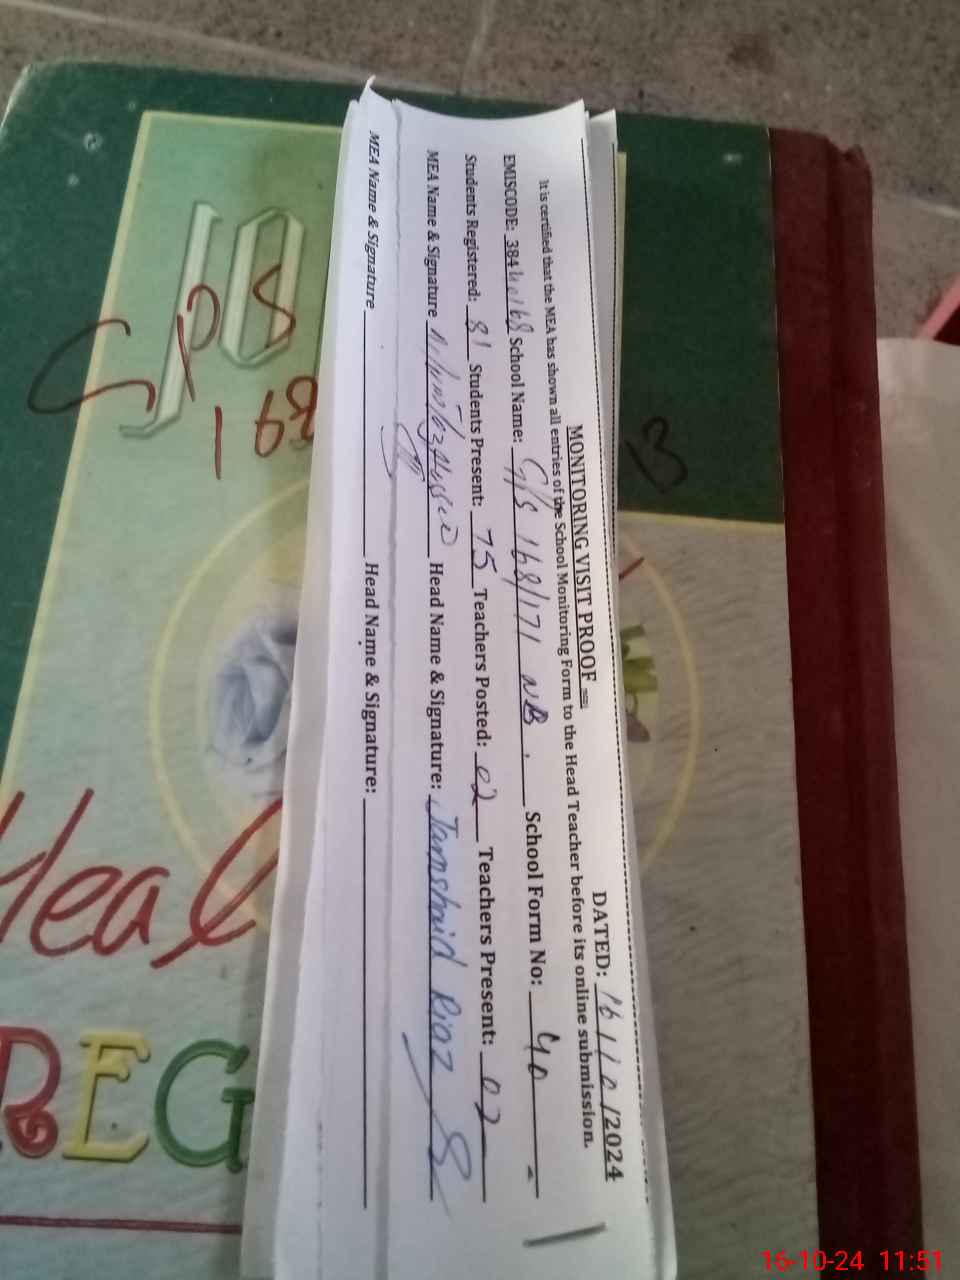 MONITORING VISIT PROOF
DATED: 16/10/2024
It is certified that the MEA has shown all entries of the School Monitoring Form to the Head Teacher before its online submission.
EMISCODE: 38440168 School Name: G/S 168/171 NB. School Form No: 40
Students Registered: 81 Students Present: 75 Teachers Posted: 02 Teachers Present: 02
MEA Name & Signature Head Name & Signature: Jamshaid Riaz
MEA Name & Signature Head Name & Signature:
REG
16-10-24 11:51